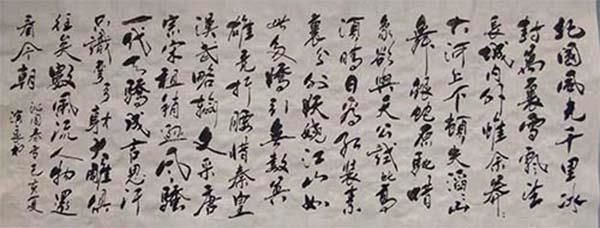 北國風光千里冰
封萬里雪飄望
長城内外惟余莽〻
大河上下頓失滔〻山
舞銀蛇原馳蠟
象欲與天公試比高
須晴日看紅裝素
裹分外妖嬈江山如
此多嬌引無數英
雄竞折腰惜秦皇
漢武略輸文采唐
宗宋祖稍遜風騷
一代天驕成吉思汗
只識彎弓射大雕俱
往矣數風流人物還
看今朝
沁园春雪己亥夏